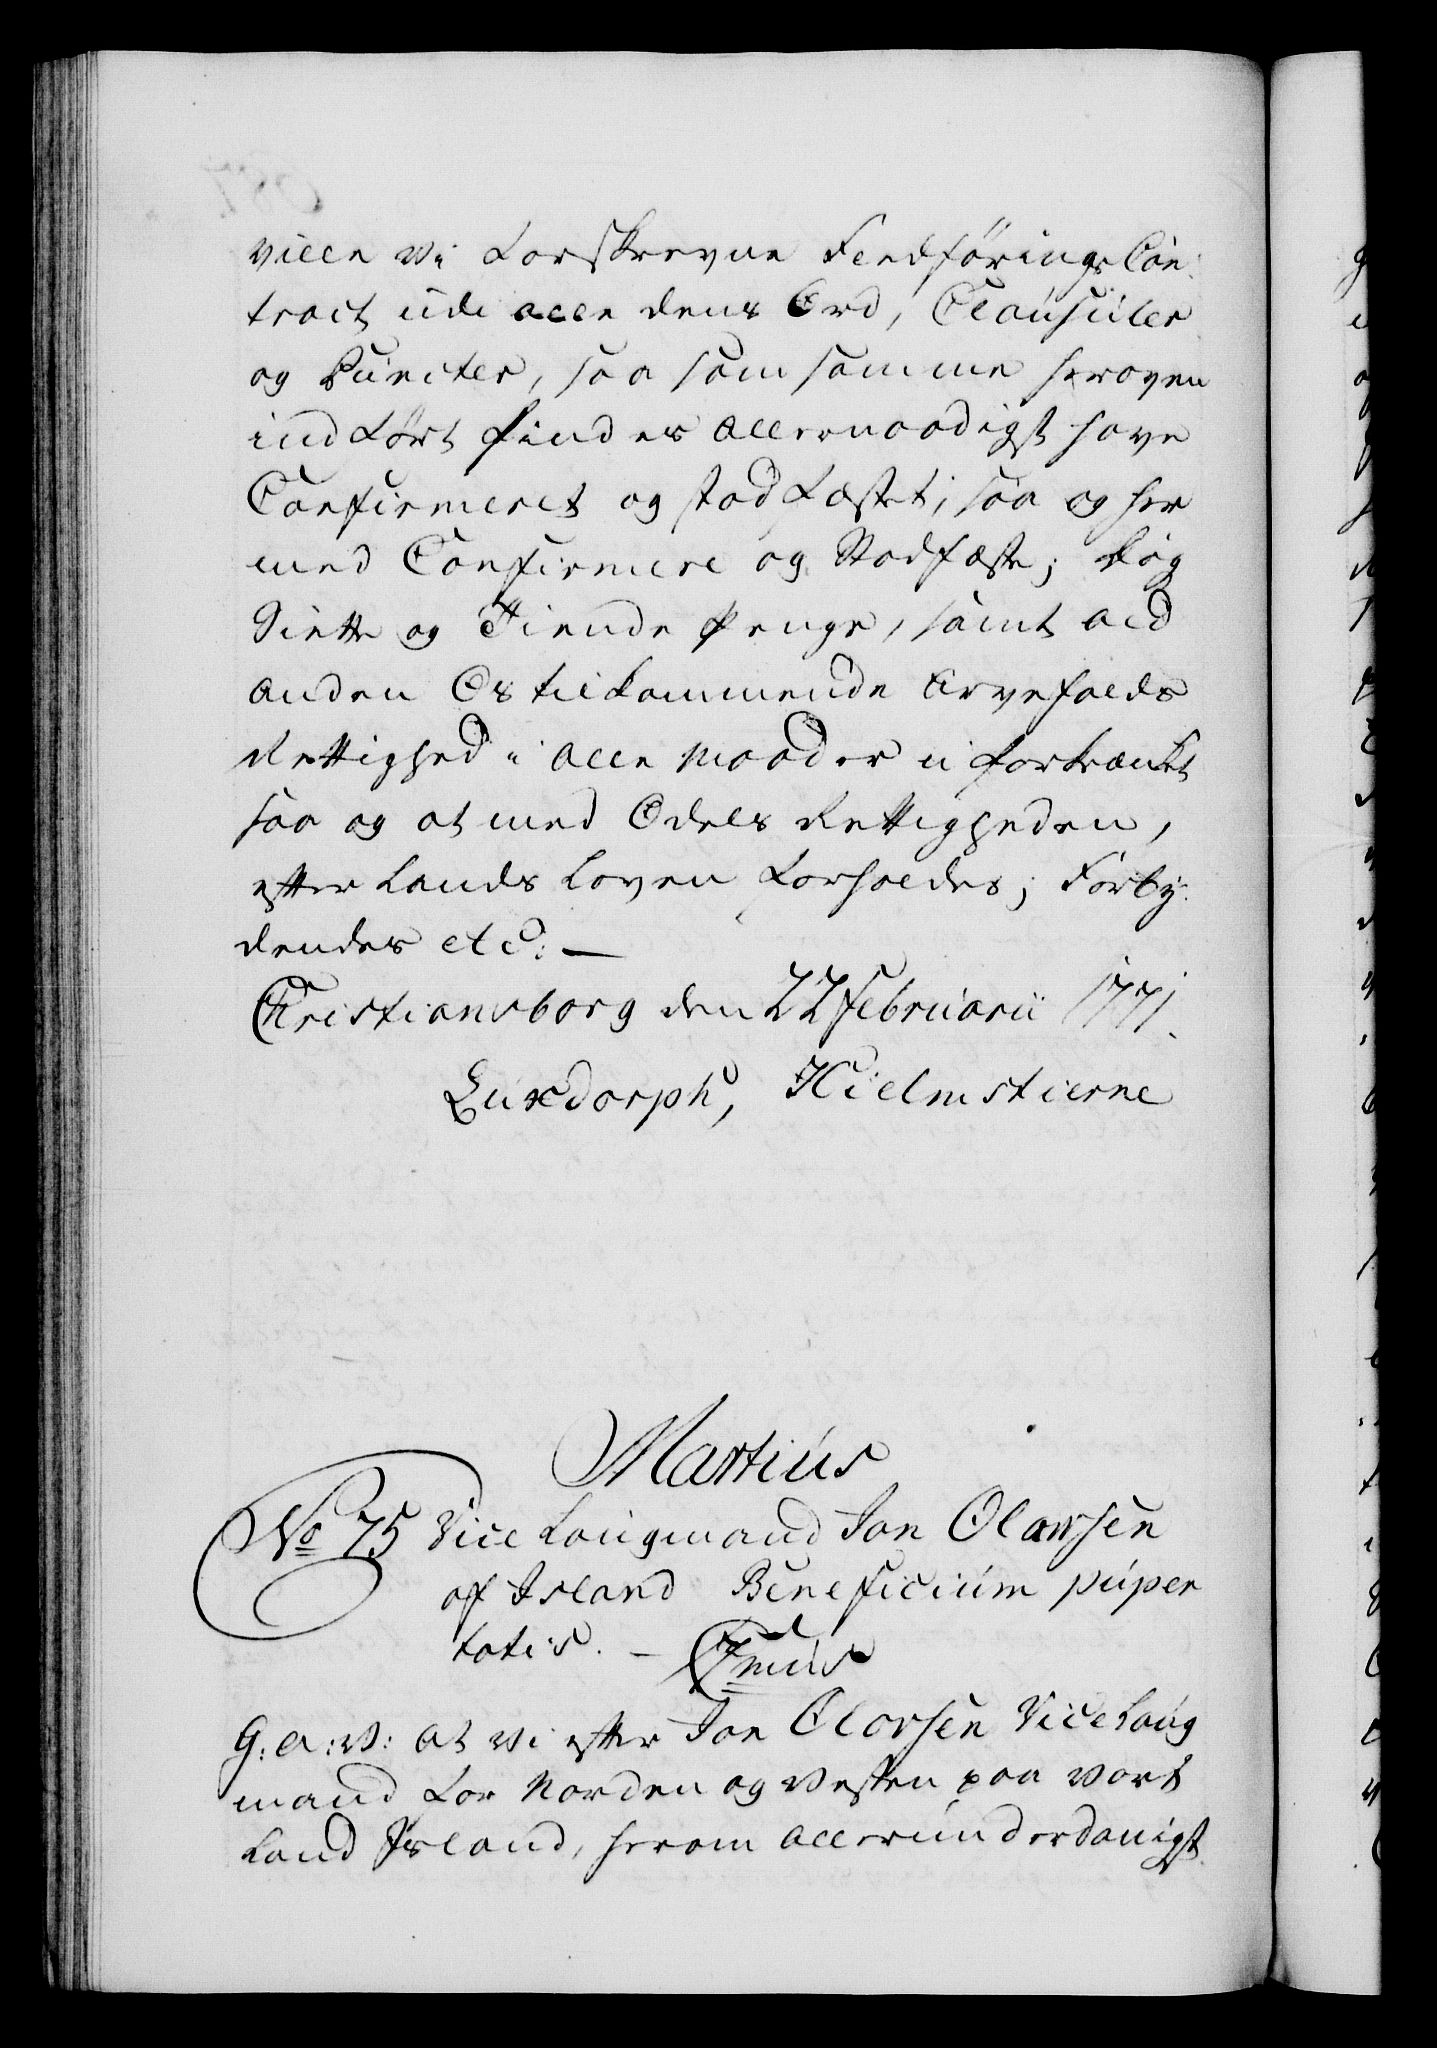 ville Vi forskrevne Fledførings Con¬
tract udi alle dens Ord, Clausuler
og Puncter, saa som samme heroven
indført findes allernaadigst have
Confirmeret og stadfæstet; saa og her
med Confirmere og Stadfæste; dog
Siette og Tiende Penge, samt ald
anden Os tilkommende Arvefalds
Rettighed i alle Maader uforkrænket
saa og at med Odels Rettigheden,
efter Lands Loven forholdes; Forby¬
dendes etc: —
Christiansborg den 22 Februarii 1771.
Luxdorph, Hielmstierne
Martius
No 75 Vice Laugmand Jon Olavsen
af Island Beneficium puper
tatis. —
7mus
G: A: V: At Vi efter Jon Olavsen Vice Laug
mand for Norden og Vesten paa vort
Land Island, herom allerunderdanigst